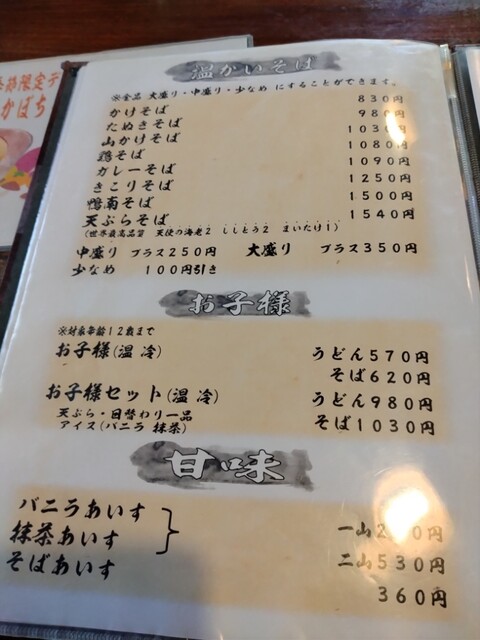 温かいそば
※全品 大盛り・中盛り・少なめ にすることができます。
かけそば 830円
たぬきそば 980円
山かけそば 1030円
鶏そば 1080円
カレーそば 1090円
きこりそば 1250円
鴨南そば 1500円
天ぷらそば 1540円
(世界最高品質 天使の海老2 ししとう2 まいたけ1)
中盛り プラス250円 大盛り プラス350円
少なめ 100円引き
お子様
※対象年齢12歳まで
お子様(温 冷) うどん570円
そば620円
お子様セット(温 冷) うどん980円
天ぷら・日替わり一品 そば1030円
アイス(バニラ 抹茶)
甘味
バニラあいす
抹茶あいす 一山
そばあいす 二山530円
360円
かぼち